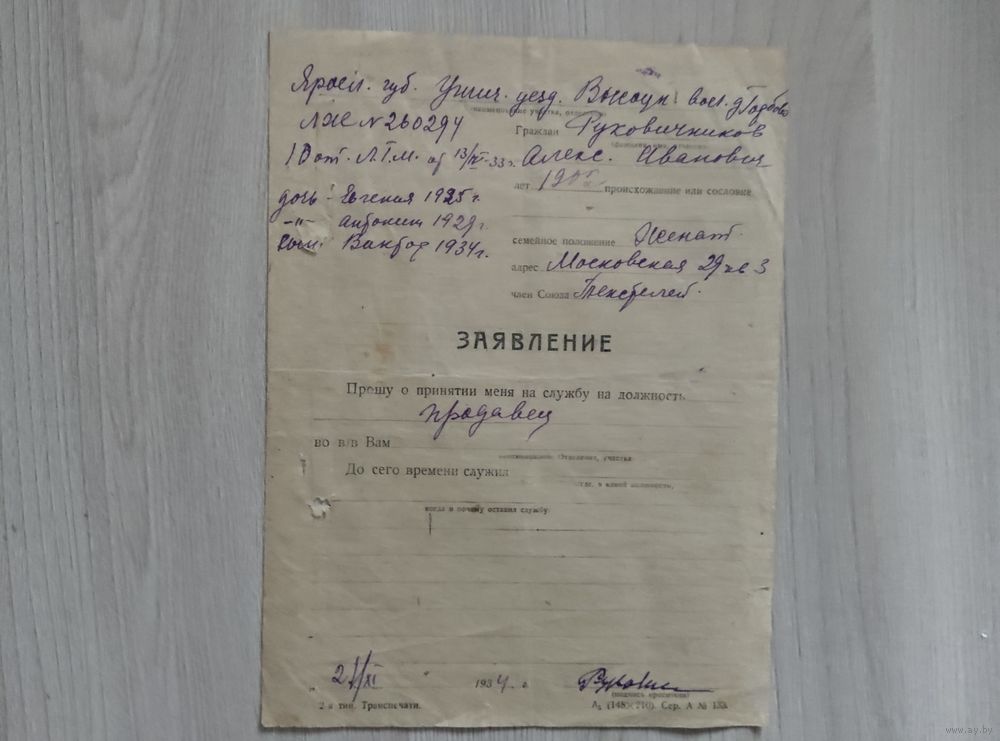 Яросл. губ. Углич. уезд. Высоцк. вол.
наименование участка,
ЛЖ № 260294 Граждан Руковичников
1 Вот. Л.Т.М. от 13/XI-33 г. Алекс. Иванович
лет 1905 г. происхождение или сословие
дочь - Евгения 1925 г.
-"- Антонин 1929 г.
сын: Виктор 1934 г. семейное положение Женат.
адрес Московская 29 кв 3
член Союза
ЗАЯВЛЕНИЕ
Прошу о принятии меня на службу на должность
продавец
во в/в Вам
наименование Отделения, участка
До сего времени служил
где, в какой должности,
когда и почему оставил службу.
1934 г.
(подпись просителя)
2-я тип. Транспечати. А₅ (148×210). Сер. А № 133.
www.ay.by